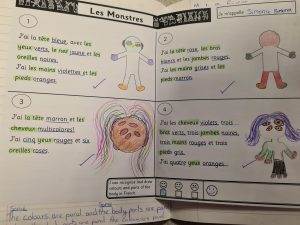 Les Monstres
Je m'appelle Simone
1
J'ai la tête bleue, avec les
yeux verts, le nez jaune et les
oreilles noires.
J'ai les mains violettes et les
pieds oranges.
2
J'ai la tête rose, les bras
blancs et les jambes rouges.
J'ai les mains grises et les
pieds marron.
3
J'ai la tête marron et les
cheveux multicolores!
J'ai cinq yeux rouges et six
oreilles roses.
4
J'ai les cheveux violets, trois
bras verts, trois jambes noires,
trois mains rouges et trois
pieds gris.
J'ai quatre yeux oranges.
I can recognise and draw
colours and parts of the
body in French
the colours are plural and the body parts are